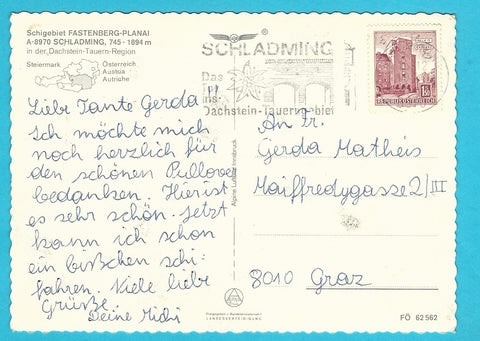 Schigebiet FASTENBERG-PLANAI
A-8970 SCHLADMING, 745 - 1894 m
in der Dachstein-Tauern-Region
Steiermark
Österreich
Austria
Autriche
SCHLADMING
Das
ins
Dachstein-Tauerngebiet
1.50
REPUBLIK ÖSTERREICH
Liebe Tante Gerda
Ich möchte mich
noch herzlich für
den schönen Pullover
bedanken. Hier ist
es sehr schön. Jetzt
kann ich schon
ein bißchen schi-
fahren. Viele liebe
Grüße
Deine Michi
Alpine Luftbild Innsbruck
An Fr.
Gerda Matheis
Maiffredygasse 2/III
8010 Graz
LANDESVERTEIDIGUNG
FÖ 62 562